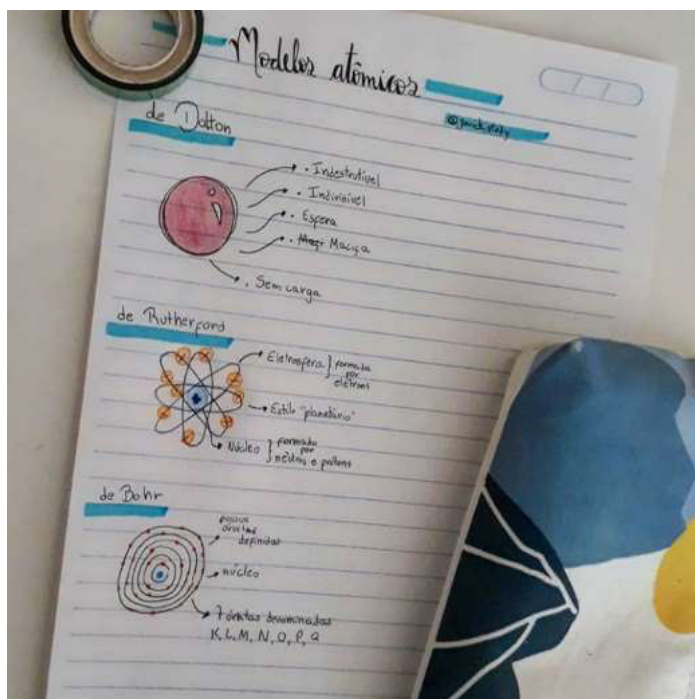 Modelos atômicos
de Dalton
. Indestrutível
. Indivisível
. Esfera
. Maciça
. Sem carga
de Rutherford
Eletrosfera } formada
por
elétrons
Estilo "planetário"
Núcleo } formado
por
nêutrons e prótons
de Bohr
possui
órbitas
definidas
núcleo
7 órbitas denominadas
K, L, M, N, O, P, Q